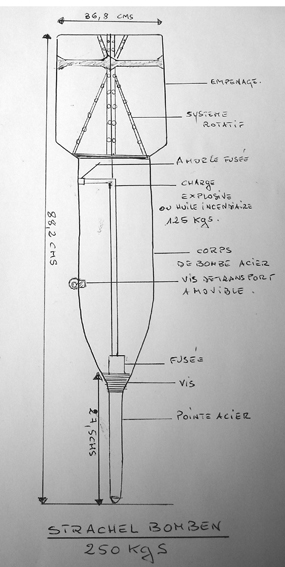 36,8 CMS
EMPENAGE.
SYSTEME
ROTATIF
AMORCE FUSÉE
CHARGE
EXPLOSIVE
OU HUILE INCENDIAIRE
125 KGS.
88,2 CMS
CORPS
DE BOMBE ACIER
VIS DE TRANSPORT
AMOVIBLE.
FUSÉE
VIS
27,5CMS
POINTE ACIER
STRACHEL BOMBEN
250 KGS